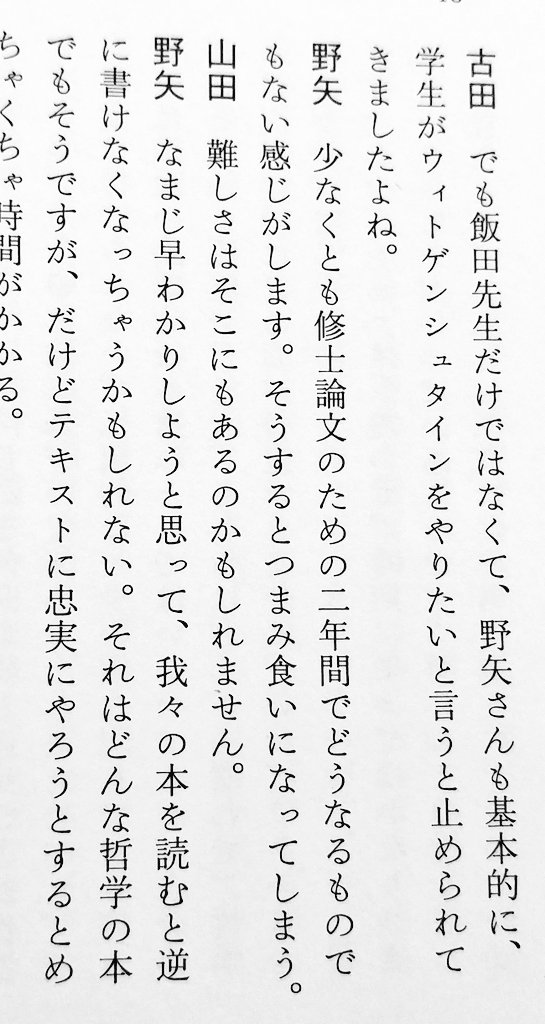 古田　でも飯田先生だけではなくて、野矢さんも基本的に、
学生がウィトゲンシュタインをやりたいと言うと止められて
きましたよね。
野矢　少なくとも修士論文のための二年間でどうなるもので
もない感じがします。そうするとつまみ食いになってしまう。
山田　難しさはそこにもあるのかもしれません。
野矢　なまじ早わかりしようと思って、我々の本を読むと逆
に書けなくなっちゃうかもしれない。それはどんな哲学の本
でもそうですが、だけどテキストに忠実にやろうとするとめ
ちゃくちゃ時間がかかる。